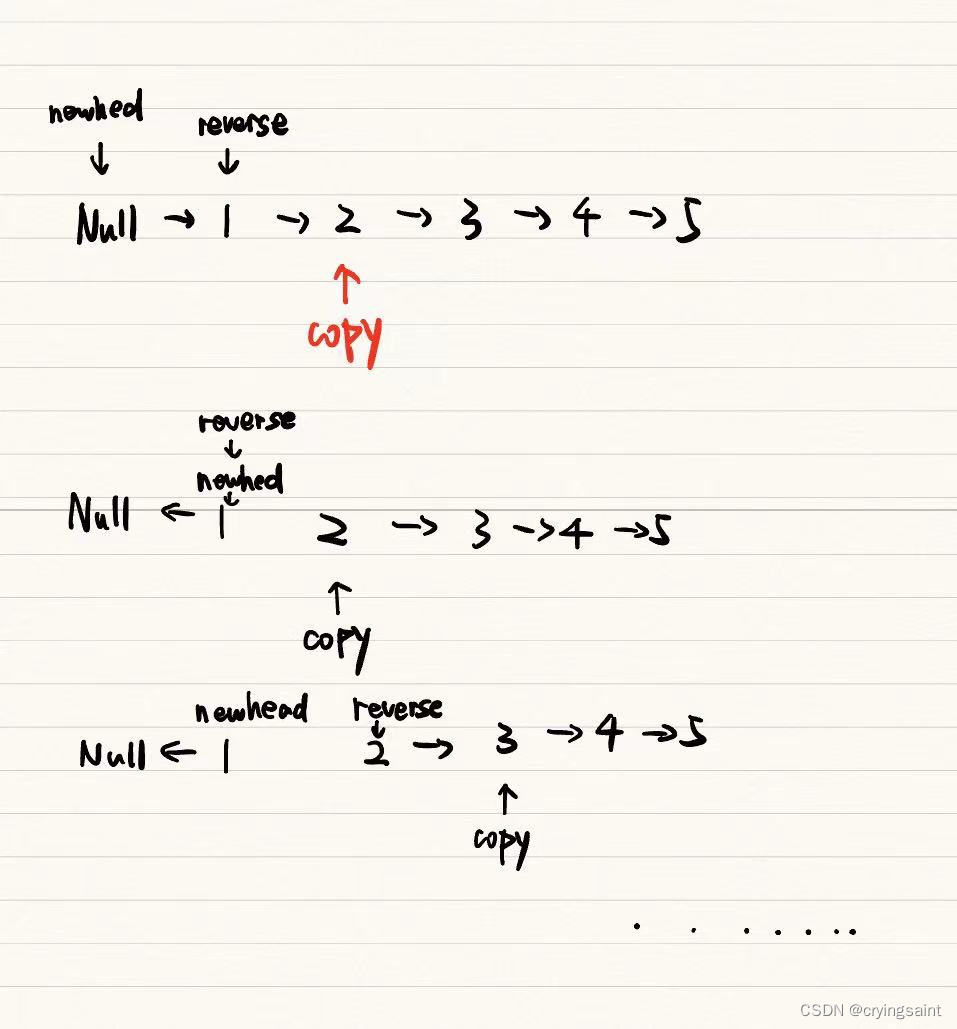 nowhed
reverse
↓ ↓
Null → 1 → 2 → 3 → 4 → 5
↑
copy
roverse
↓
nowhed
↓
Null ← 1 2 → 3 → 4 → 5
↑
copy
newhead reverse
↓
Null ← 1 2 → 3 → 4 → 5
↑
copy
. . . . . . .
CSDN @cryingsaint